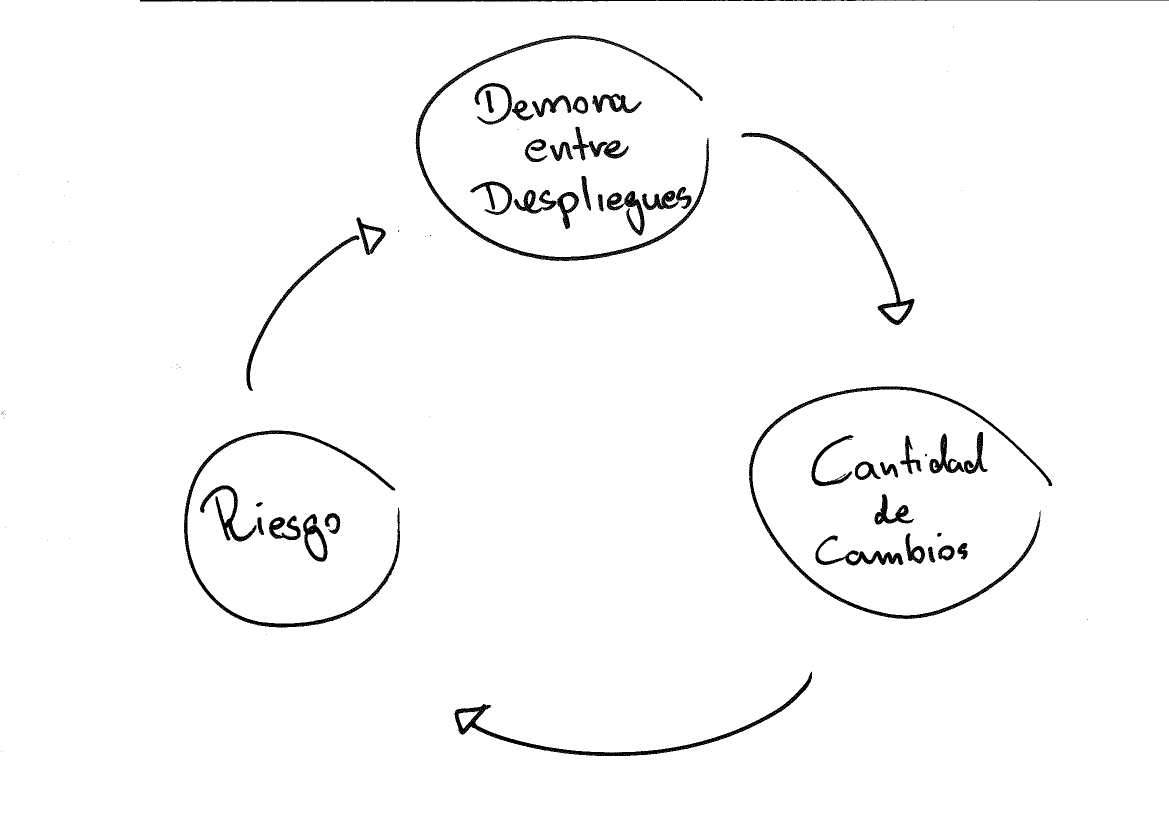 Demora
entre
Despliegues
Cantidad
de
Cambios
Riesgo